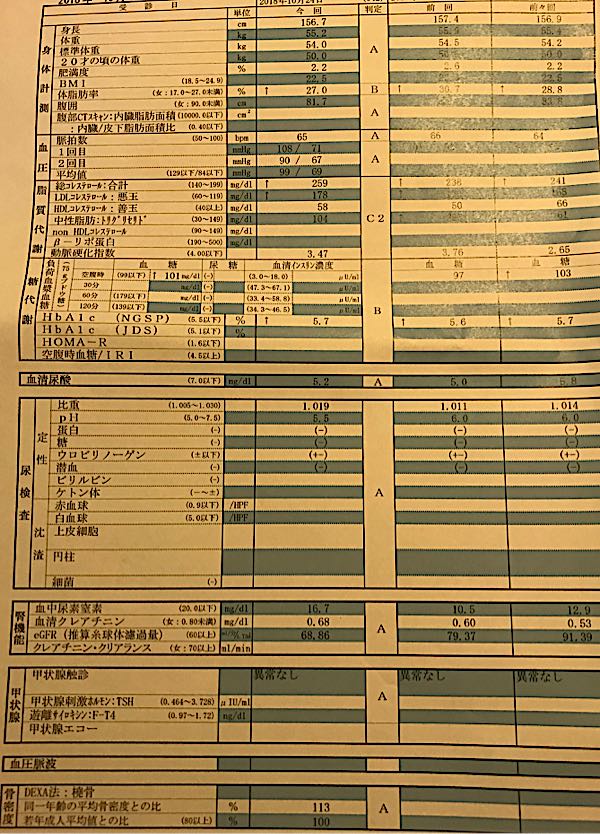 受診日 単位 今回 判定 前回 前々回
2018年10月24日
身体計測
身長 cm 156.7 157.4 156.9
体重 kg 55.2
標準体重 kg 54.0 A 54.5 54.2
20才の頃の体重 kg 50.0
肥満度 % 2.2 2.6 2.2
BMI (18.5~24.9) 22.5
体脂肪率 (女:17.0~27.0未満) % ↑ 27.0 B ↑ ↑ 28.8
腹囲 (女:90.0未満) cm 81.7
腹部CTスキャン:内臓脂肪面積 (10000.0以下) cm² A
:内臓/皮下脂肪面積比 (0.40以下)
血圧
脈拍数 (50~100) bpm 65 A 66 64
1回目 mmHg 108 / 71
2回目 mmHg 90 / 67 A
平均値 (129以下/84以下) mmHg 99 / 69
脂質代謝
総コレステロール:合計 (140~199) mg/dl ↑ 259 ↑ 236 ↑ 241
LDLコレステロール:悪玉 (60~119) mg/dl ↑ 178
HDLコレステロール:善玉 (40以上) mg/dl 58 50 66
中性脂肪:トリグリセリド (30~149) mg/dl 104 C2
non HDLコレステロール (90~149) mg/dl
β-リポ蛋白 (190~500) mg/dl
動脈硬化指数 (4.00以下) 3.47 3.76 2.65
糖代謝
負荷血漿血糖 (75gブドウ糖)
血糖 尿糖 血清インスリン濃度 血糖 血糖
空腹時 (99以下) ↑ 101 mg/dl (-) (3.0~18.0) μU/ml 97 ↑ 103
30分 mg/dl (-) (47.3~67.1) μU/ml
60分 (179以下) mg/dl (-) (33.4~58.8) μU/ml
120分 (139以下) mg/dl (-) (34.3~46.5) μU/ml B
HbA1c (NGSP) (5.5以下) % ↑ 5.7 ↑ 5.6 ↑ 5.7
HbA1c (JDS) (5.1以下) %
HOMA-R (1.6以下)
空腹時血糖/IRI (4.5以上)
血清尿酸 (7.0以下) mg/dl 5.2 A 5.0 5.8
尿検査
定性
比重 (1.005~1.030) 1.019 1.011 1.014
pH (5.0~7.5) 5.5 6.0 6.0
蛋白 (-) (-) (-) (-)
糖 (-) (-) (-) (-)
ウロビリノーゲン (±以下) (+-) (+-) (+-)
潜血 (-) (-) (-) (-)
ビリルビン (-)
ケトン体 (-~±) A
沈渣
赤血球 (0.9以下) /HPF
白血球 (5.0以下) /HPF
上皮細胞
円柱
細菌 (-)
腎機能
血中尿素窒素 (20.0以下) mg/dl 16.7 10.5 12.9
血清クレアチニン (女:0.80未満) mg/dl 0.68 A 0.60 0.53
eGFR (推算糸球体濾過量) (60以上) 68.86 79.37 91.39
クレアチニン・クリアランス (女:70以上) ml/min
甲状腺
甲状腺触診 異常なし 異常なし 異常なし
甲状腺刺激ホルモン:TSH (0.464~3.728) μIU/ml A
遊離サイロキシン:F-T4 (0.97~1.72) ng/dl
甲状腺エコー
血圧脈波
骨密度
DEXA法:橈骨
同一年齢の平均骨密度との比 % 113 A
若年成人平均値との比 (80以上) % 100